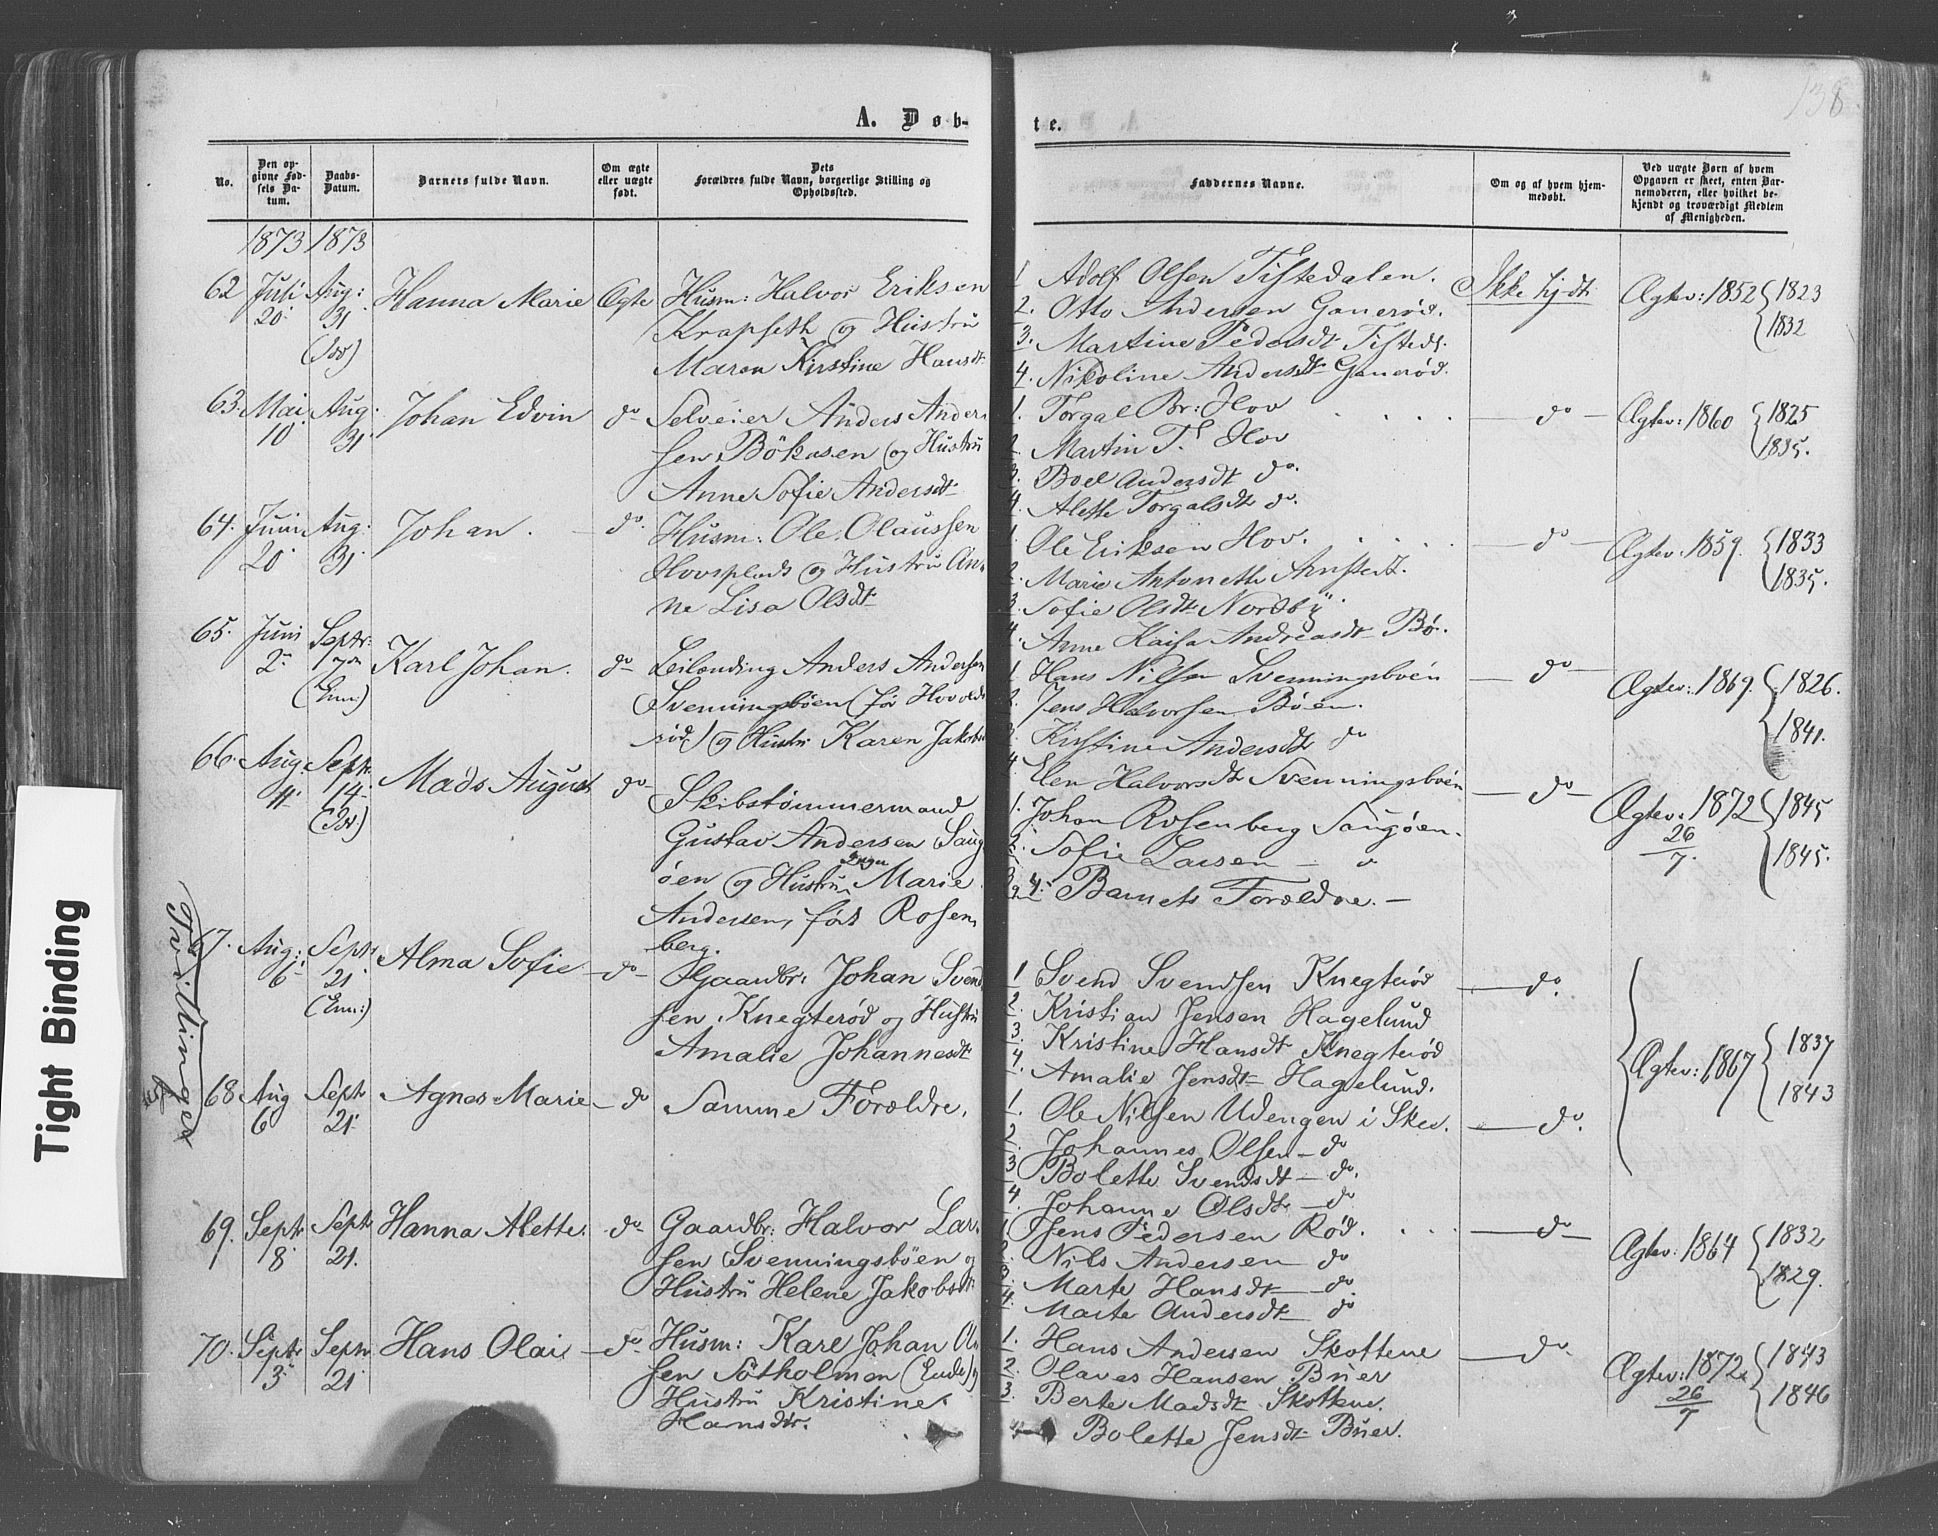 138
A. Døb-
te.
No.
Den op-
givne Fød-
sels Da-
tum.
Daabs-
Datum.
Barnets fulde Navn.
Om ægte
eller uægte
født.
Dets
Forældres fulde Navn, borgerlige Stilling og
Opholdssted.
Faddernes Navne.
Om og af hvem hjem-
medøbt.
Ved uægte Børn af hvem
Opgaven er skeet, enten Bar-
nemoderen, eller hvilket be-
kjendt og troværdigt Medlem
af Menigheden.
1873 1873
62 Juli 20. Aug: 31 (Idd) Hanna Marie Ægte
Husm: Halvor Eriksen
Krapfeth og Hustru
Maren Kirstine Hansdt.
1 Adolf Olsen Tistedalen.
2. Otto Andersen Ganerød.
3. Martine Pedersdt Tisteds.
4. Nikoline Andersdt Ganerød.
Ikke hj-dt.
Ægtev: 1852 { 1823
1832
63. Mai 10 Aug: 31 Johan Edvin do
Selveier Anders Ander-
sen Bökåsen og Hustru
Anne Sofie Andersdt
1. Torgal Br: Hov
2. Martin T. Hov
3. Boel Andersdt do.
4. Alette Torgalsdt do.
do
Ægtev: 1860 { 1825
1835.
64. Juni 20 Aug: 31 Johan. do.
Husm: Ole Olaussen
Hovsplads og Hustru An-
ne Lisa Olsdt
1. Ole Eriksen Hov.
2. Marie Antonette
3. Sofie Olsdt Nordby.
4. Anne Kaisa Andreasdt Bø.
do
Ægtev: 1859. { 1833
1835.
65. Juni 2 Septr: 7 (Enn:) Karl Johan. do
Leilænding Anders Andersen
Svenningsbøen (før
rød) og Hustru Karen Jakobs
1. Hans Nilsen Svenningsbøen
2. Jens Halvorsen Bøen.
3. Kirstine Andersdt do
4. Elen Halvorsdt Svenningsbøen
do
Ægtev: 1869. { 1826.
1841.
66. Aug: 4 Septr 14 (Idd) Mads August do
Skibstømmermand
Gustav Andersen Saug-
øen og Hustru Inger Marie
Andersen, født Rosen-
berg.
1. Johan Rosenberg Saugøen.
2. Sofie Larsen do
3 og 4. Barnets Forældre.
do
Ægtev: 1872 26/7. { 1845
1845.
Tvillinger
67. Aug: 6 Septr 21 (Enn:) Alma Sofie do
Gaardbr: Johan Svend-
sen Knegterød og Hustru
Amalie Johannesdt
1 Svend Svendsen Knegterød
2. Kristian Jensen Hagelund
3. Kristine Hansdt Knegterød
4. Amalie Jensdt Hagelund.
do.
Ægtev: 1867 { 1837
1843
68 Aug 6 Septr 21 Agnes Marie do
Samme Forældre.
1. Ole Nilsen Udengen i Skee.
2. Johannes Olsen do
3 Bolette Svendsdt do.
4 Johanne Olsdt do
do.
69. Septr 8 Septr 21. Hanna Alette. do
Gaardbr: Halvor Lar-
sen Svenningsbøen og
Hustru Helene Jakobsdt
1 Jens Pedersen Rød.
2. Nils Andersen do
3. Marte Hansdt do.
4. Marte Andersdt do
do
Ægtev: 1864 { 1832
1829.
70. Septr 3 Septr 21 Hans Olai do
Husm: Karl Johan Ol-
sen Søtholmen (Ende) og
Hustru Kristine
Hansdtr.
1. Hans Andersen Skottene
2. Olaves Hansen Buer
3. Berte Madsdt Skottene.
Bolette Jensdt Buer.
do.
Ægtev: 1872 26/7 { 1843
1846
Tight Binding